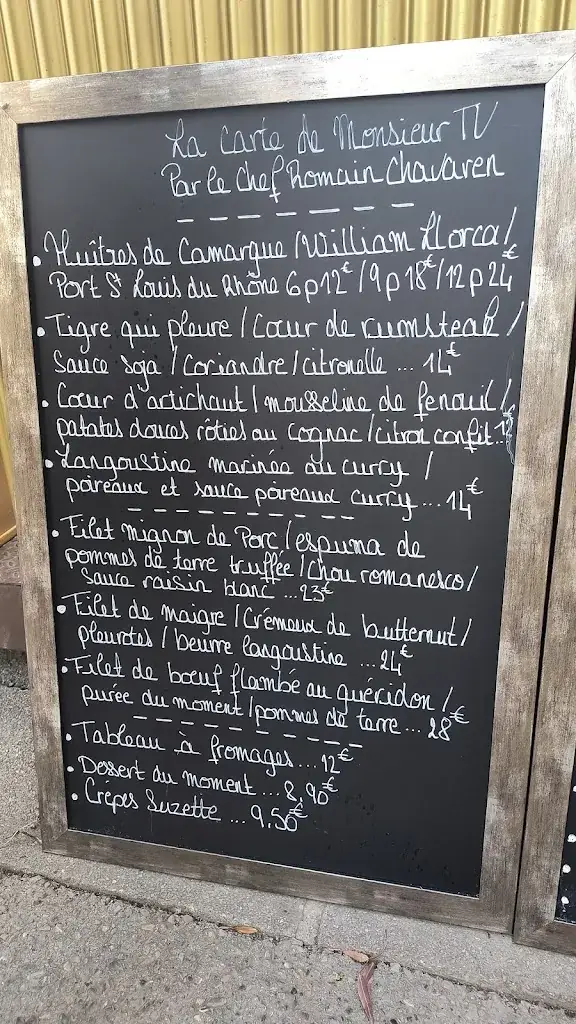 La Carte de Monsieur TV
Par le Chef Romain Chavaren
• Huîtres de Camargue / William Llorca /
Port St Louis du Rhône 6p12€ / 9p18€ / 12p24€
• Tigre qui pleure / Cœur de rumsteak /
Sauce soja / Coriandre / citronelle ... 14€
• Cœur d'artichaut / mousseline de fenouil /
patates douces rôties au cognac / citron confit..
• Langoustine marinée au curry /
poireaux et sauce poireaux curry ... 14€
• Filet mignon de Porc / espuma de
pommes de terre truffée / Chou romanesco /
Sauce raisin blanc ... 23€
• Filet de maigre / Crémeux de butternut /
pleurotes / beurre langoustine ... 24€
• Filet de bœuf flambé au guéridon /
purée du moment / pommes de terre ... 28€
• Tableau à fromages ... 12€
• Dessert du moment ... 8,90€
• Crêpes Suzette ... 9,50€